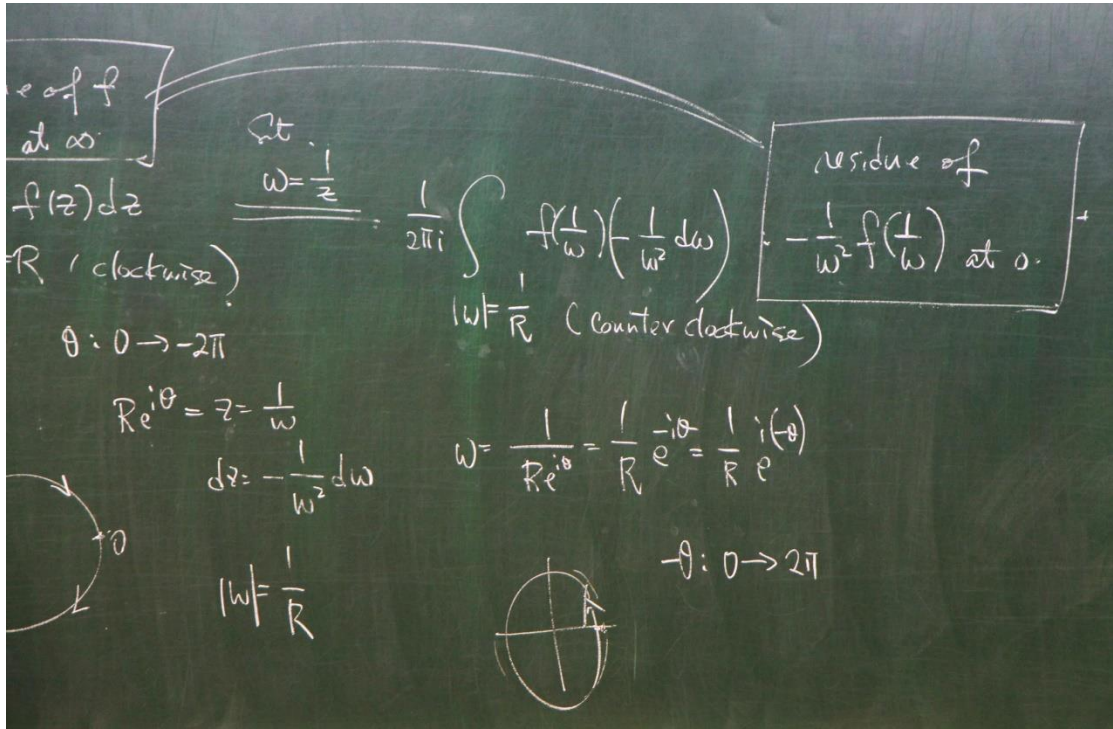 e of f
at ∞
f(z)dz
=R (clockwise)
θ: 0 → -2π
Re^{iθ} = z = \frac{1}{w}
dz = -\frac{1}{w^2} dw
|w| = \frac{1}{R}
Set
w = \frac{1}{z}
\frac{1}{2πi} ∫_{|w|=\frac{1}{R} (counter clockwise)} f(\frac{1}{w})(-\frac{1}{w^2} dw)
w = \frac{1}{Re^{iθ}} = \frac{1}{R} e^{-iθ} = \frac{1}{R} e^{i(-θ)}
-θ: 0 → 2π
residue of
-\frac{1}{w^2} f(\frac{1}{w}) at 0.